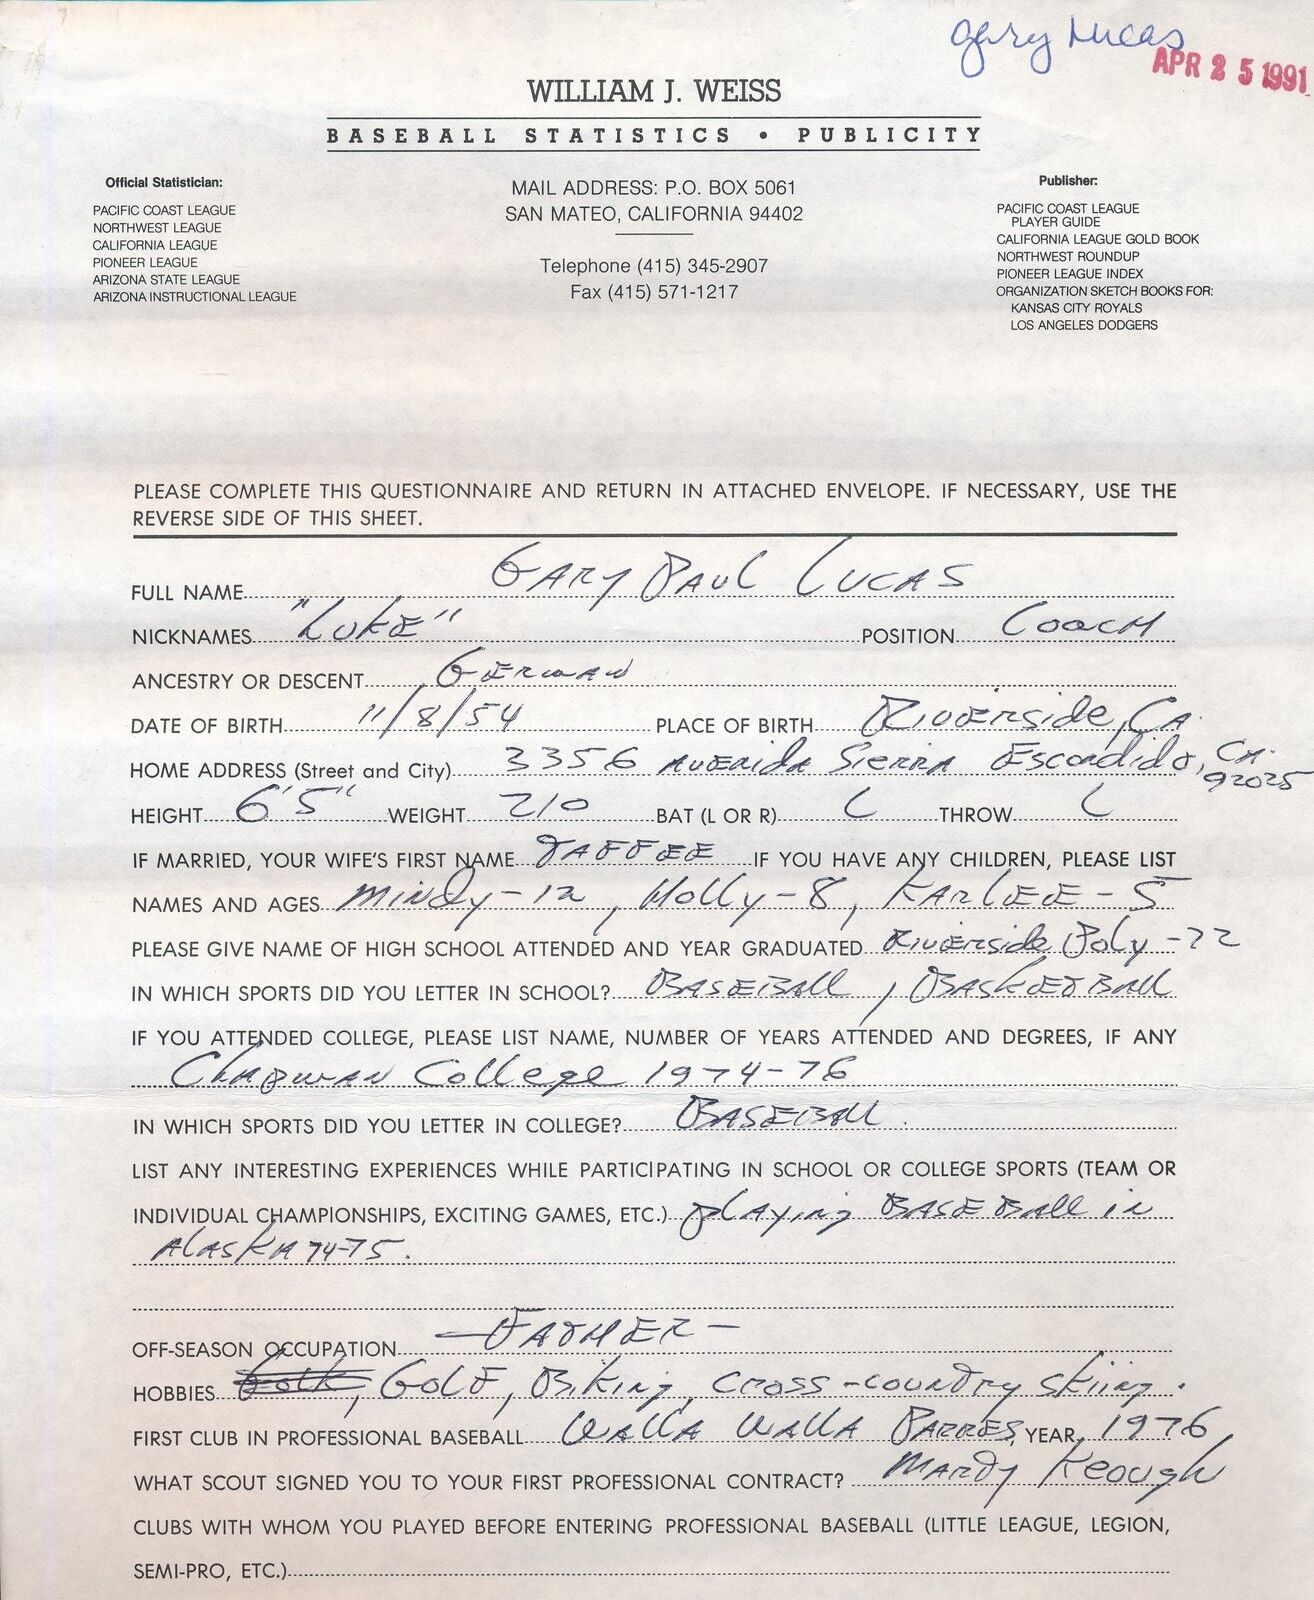 Gary Lucas
APR 25 1991
WILLIAM J. WEISS
BASEBALL STATISTICS • PUBLICITY
Official Statistician:
PACIFIC COAST LEAGUE
NORTHWEST LEAGUE
CALIFORNIA LEAGUE
PIONEER LEAGUE
ARIZONA STATE LEAGUE
ARIZONA INSTRUCTIONAL LEAGUE
MAIL ADDRESS: P.O. BOX 5061
SAN MATEO, CALIFORNIA 94402
Telephone (415) 345-2907
Fax (415) 571-1217
Publisher:
PACIFIC COAST LEAGUE
PLAYER GUIDE
CALIFORNIA LEAGUE GOLD BOOK
NORTHWEST ROUNDUP
PIONEER LEAGUE INDEX
ORGANIZATION SKETCH BOOKS FOR:
KANSAS CITY ROYALS
LOS ANGELES DODGERS
PLEASE COMPLETE THIS QUESTIONNAIRE AND RETURN IN ATTACHED ENVELOPE. IF NECESSARY, USE THE
REVERSE SIDE OF THIS SHEET.
FULL NAME Gary Paul Lucas
NICKNAMES "LUKE" POSITION Coach
ANCESTRY OR DESCENT German
DATE OF BIRTH 11/8/54 PLACE OF BIRTH Riverside, CA.
HOME ADDRESS (Street and City) 3356 Avenida Sierra Escondido, CA. 92025
HEIGHT 6'5" WEIGHT 210 BAT (L OR R) L THROW L
IF MARRIED, YOUR WIFE'S FIRST NAME IF YOU HAVE ANY CHILDREN, PLEASE LIST
NAMES AND AGES Mindy-12, Holly-8, Karlee-5
PLEASE GIVE NAME OF HIGH SCHOOL ATTENDED AND YEAR GRADUATED Riverside Poly -72
IN WHICH SPORTS DID YOU LETTER IN SCHOOL? Baseball, Basketball
IF YOU ATTENDED COLLEGE, PLEASE LIST NAME, NUMBER OF YEARS ATTENDED AND DEGREES, IF ANY
Chapman College 1974-76
IN WHICH SPORTS DID YOU LETTER IN COLLEGE? Baseball.
LIST ANY INTERESTING EXPERIENCES WHILE PARTICIPATING IN SCHOOL OR COLLEGE SPORTS (TEAM OR
INDIVIDUAL CHAMPIONSHIPS, EXCITING GAMES, ETC.) Playing Baseball in
Alaska 74-75.
OFF-SEASON OCCUPATION -FATHER-
HOBBIES Golf, Biking, cross-country skiing.
FIRST CLUB IN PROFESSIONAL BASEBALL Walla Walla Padres, YEAR 1976
WHAT SCOUT SIGNED YOU TO YOUR FIRST PROFESSIONAL CONTRACT? Mardy Keough
CLUBS WITH WHOM YOU PLAYED BEFORE ENTERING PROFESSIONAL BASEBALL (LITTLE LEAGUE, LEGION,
SEMI-PRO, ETC.)